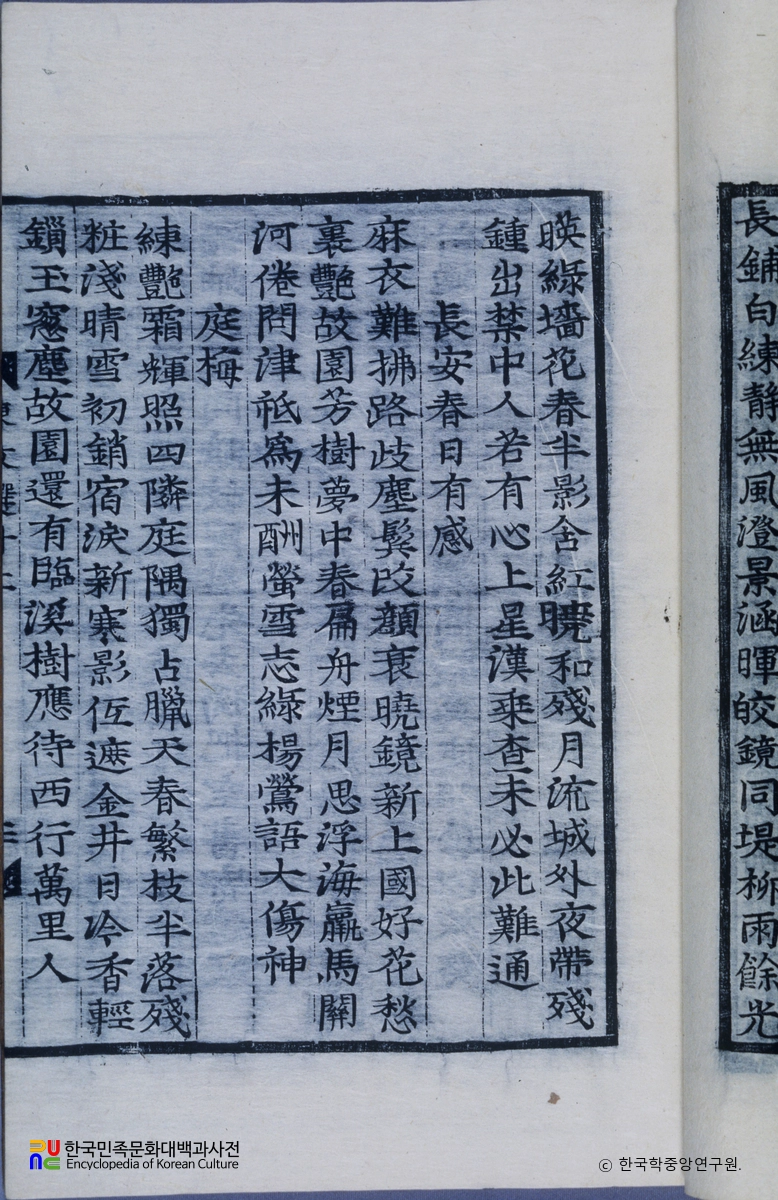 長鋪白練靜無風澄景涵暉皎鏡同堤柳雨餘光
暎綠墻花春半影含紅曉和殘月流城外夜帶殘
鍾出禁中人若有心上星漢乘査未必此難通
長安春日有感
麻衣難拂路歧塵鬂改顔衰曉鏡新上國好花愁
裏艷故園芳樹夢中春扁舟煙月思浮海羸馬關
河倦問津祗爲未酬螢雪志綠楊鶯語大傷神
庭梅
練艷霜輝照四隣庭隅獨占臘天春繁枝半落殘
粧淺晴雪初銷宿淚新寒影伍遮金井日冷香輕
鎻玉窓塵故園還有臨溪樹應待西行萬里人
한국민족문화대백과사전
Encyclopedia of Korean Culture
ⓒ 한국학중앙연구원.